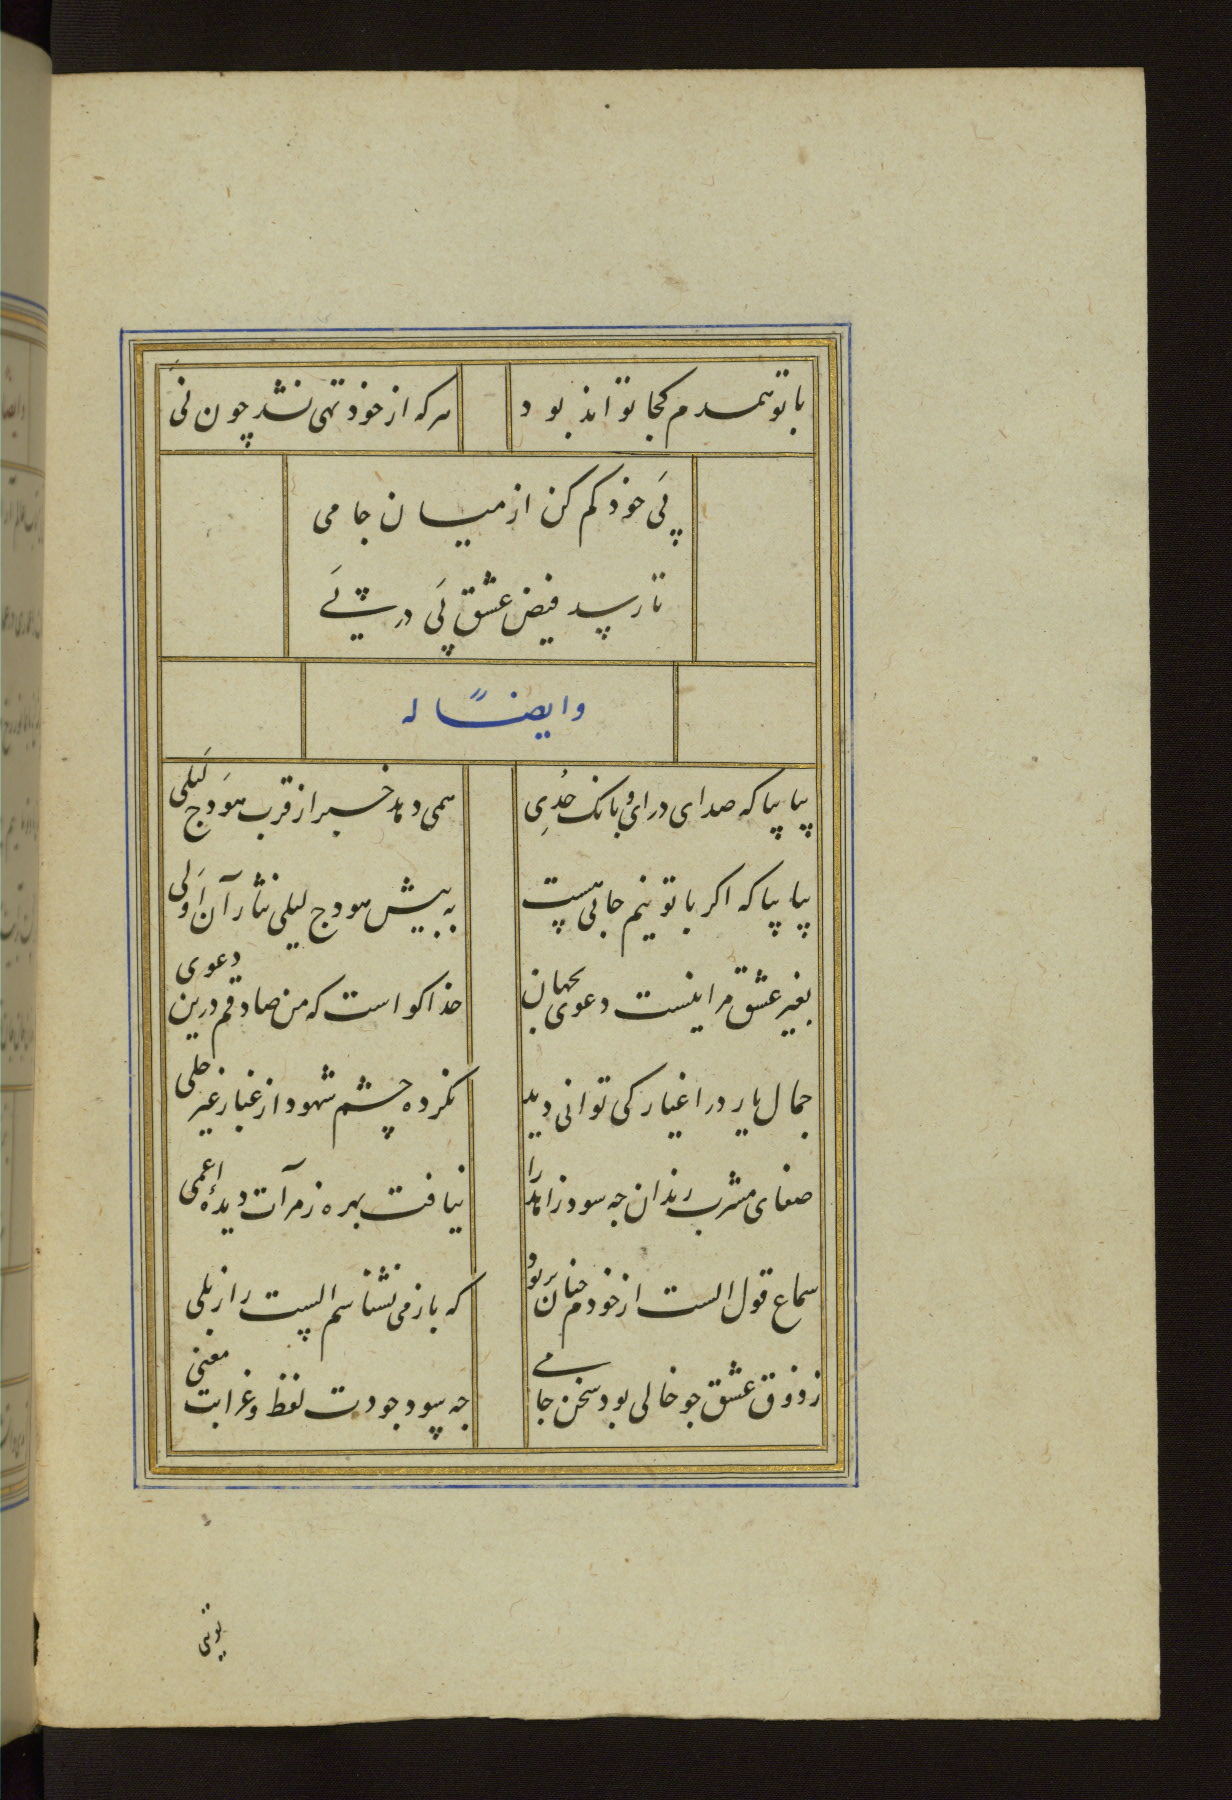 با تو همدم کجا تواند بود هر که از خود تهی نشد چون نی
پی خود کم کن از میان جامی
تا رسد فیض عشق پی در پی
وایضاً له
بیا بیا که صدای درای و بانک حدی همی دهد خبر از قرب هودج لیلی
بیا بیا که اکر با تو نیم جانی هست به پیش هودج لیلی نثار آن اولی
بغیر عشق مرا نیست دعوی بجهان خدا کواست که من صادقم درین دعوی
جمال یار در اغیار کی توانی دید نکرده چشم شهود از غبار غیر جلی
صفای مشرب رندان چه سود زاهد را نیافت بهره ز مرآت دیده اعمی
سماع قول الست از خودم چنان بربود که باز می نشناسم الست را ز بلی
ز ذوق عشق چو خالی بود سخن جامی چه سود جودت لفظ و غرابت معنی
تویی